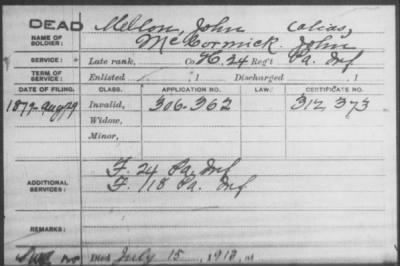 DEAD
Mellon, John (alias)
NAME OF SOLDIER:
McCormick, John
SERVICE: Late rank, Co. H. 24 Reg't Pa. Inf
TERM OF SERVICE: Enlisted , 1 Discharged , 1
DATE OF FILING. CLASS. APPLICATION NO. LAW. CERTIFICATE NO.
1879 Aug 29 Invalid, 306.362 312 373
Widow,
Minor,
F. 24 Pa. Inf
ADDITIONAL SERVICES: F. 118 Pa. Inf
REMARKS:
Died July 15, 1912, at